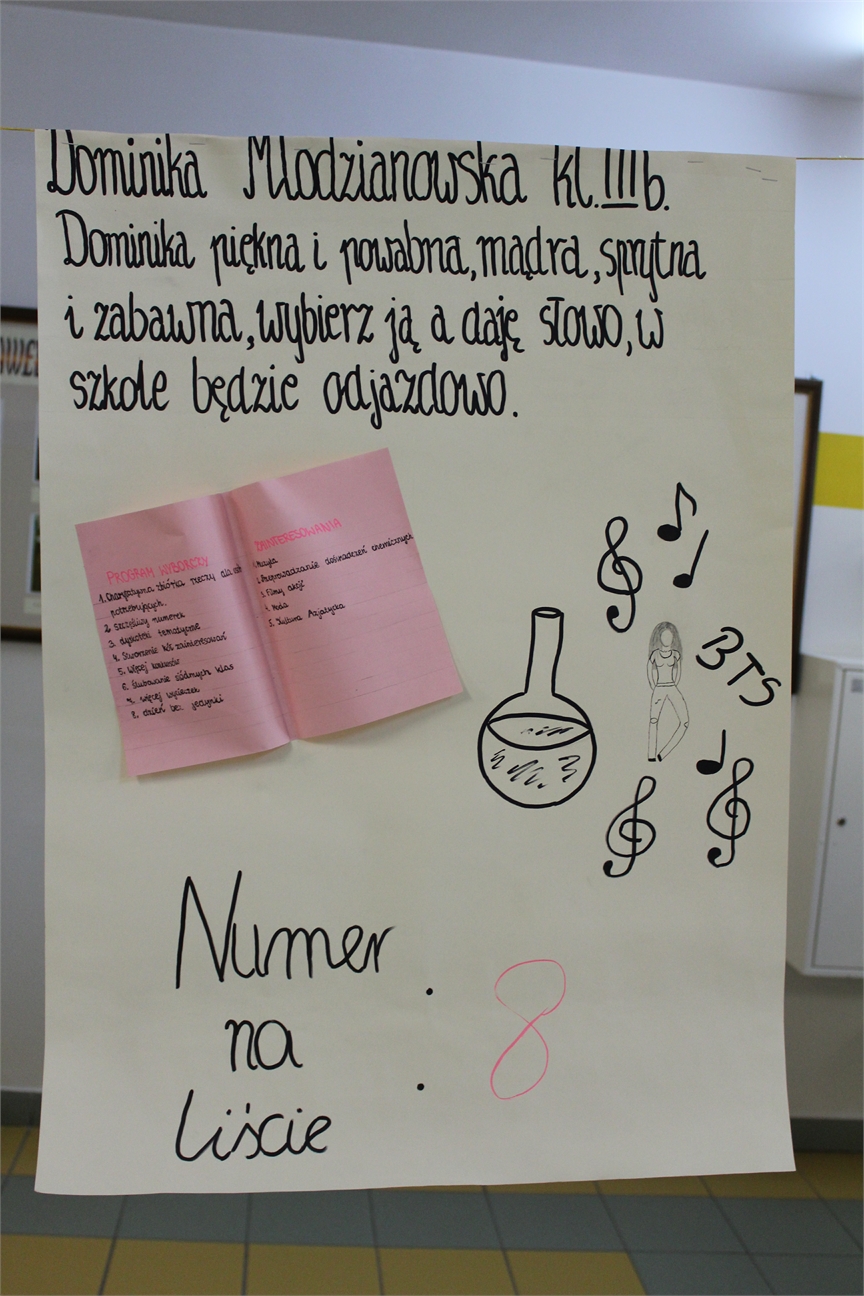 Dominika Młodzianowska kl. III b.
Dominika piękna i powabna, mądra, sprytna
i zabawna, wybierz ją a daję słowo, w
szkole będzie odjazdowo.
PROGRAM WYBORCZY
1. Charytatywna zbiórka rzeczy dla osób
potrzebujących.
2. Szczęśliwy numerek
3. dyskoteki tematyczne
4. Stworzenie kół zainteresowań
5. Więcej konkursów
6. Ślubowanie siódmych klas
7. więcej wycieczek
8. dzień bez jedynki
ZAINTERESOWANIA
1. Muzyka
2. Przeprowadzanie doświadczeń chemicznych
3. Filmy akcji
4. Moda
5. Kultura Azjatycka
BTS
Numer
na
liście
: 8